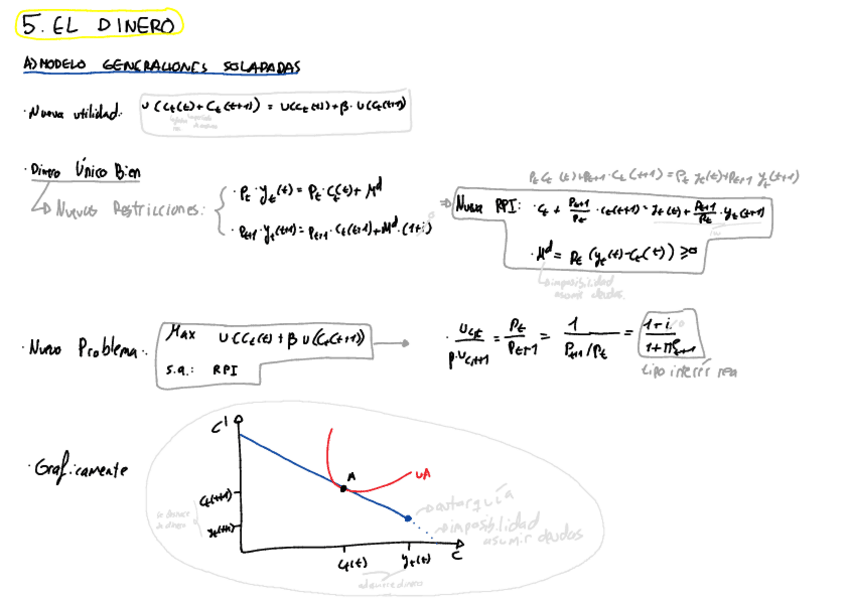 5. EL DINERO
A) MODELO GENERACIONES SOLAPADAS
· Nueva utilidad: U(Ct(t)+Ct(t+1)) = U(Ct(t)) + β· U(Ct(t+1))
· Dinero Único Bien
↳ Nuevas Restricciones:
· Pt · yt(t) = Pt · Ct(t) + Md
· Pt+1 · yt(t+1) = Pt+1 · Ct(t+1) + Md · (1+i)
Pt Ct(t) + Pt+1 · Ct(t+1) = Pt yt(t) + Pt+1 yt(t+1)
⇒ Nueva RPI: · Ct + Pt+1/Pt · Ct(t+1) = yt(t) + Pt+1/Pt · yt(t+1)
· Md = Pt (yt(t) - Ct(t)) ≥ 0
↳ imposibilidad
asumir deudas.
· Nuevo Problema:
Max U(Ct(t)) + β U(Ct(t+1))
s.a.: RPI
· Uct/β·Uct+1 = Pt/Pt+1 = 1/Pt+1/Pt = 1+i/1+πt+1
tipo interés rea
· Graficamente
C'
A
UA
Ct(t+1)
yt(t+1)
autarquía
imposibilidad
asumir deudas
Ct(t)
yt(t)
C
adquiere dinero